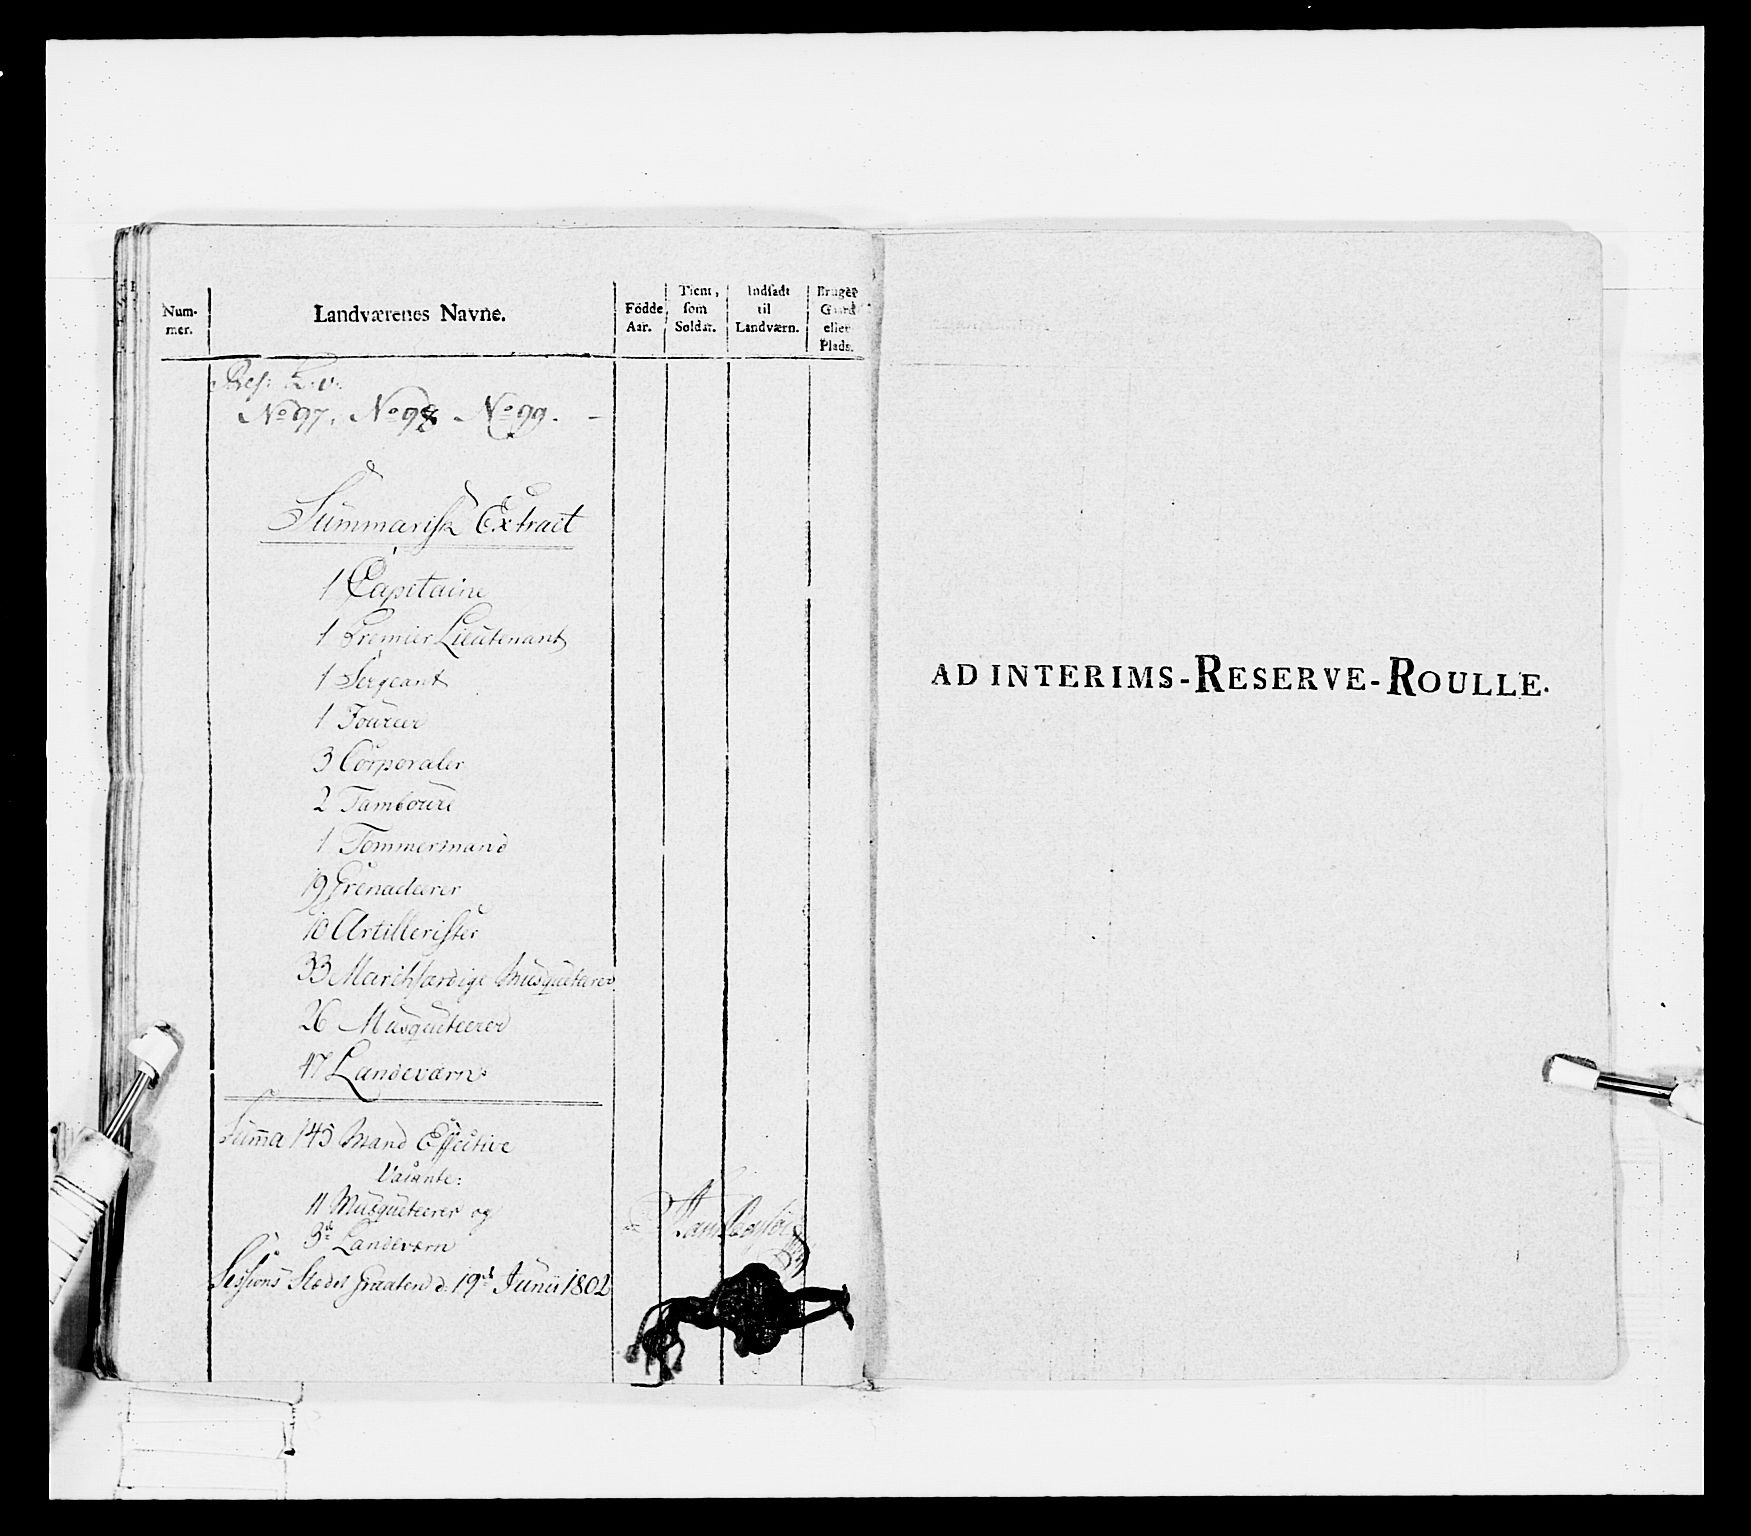 Num-
mer.
Landværenes Navne.
Födde
Aar.
Tient,
som
Soldat.
Indsadt
til
Landværn.
Bruger
Gaard
eller
Plads.
No 97, No 98 No 99.
Summarisk Extract
1 Capitaine
1 Premier Lieutenant
1 Sergeant
1 Fourier
3 Corporaler
2 Tambourer
1 Tømmermand
19 Grenadeerer
10 Artillerister
33 Marchfærdige Musqueterer
26 Musqueteerer
47 Landeværn
Summa 145 Mand Effective
Vacante:
11 Musqueteerer og
3de Landeværn
Sessions Stedet Graaten d. 19de Junii 1802
AD INTERIMS-RESERVE-ROULLE.